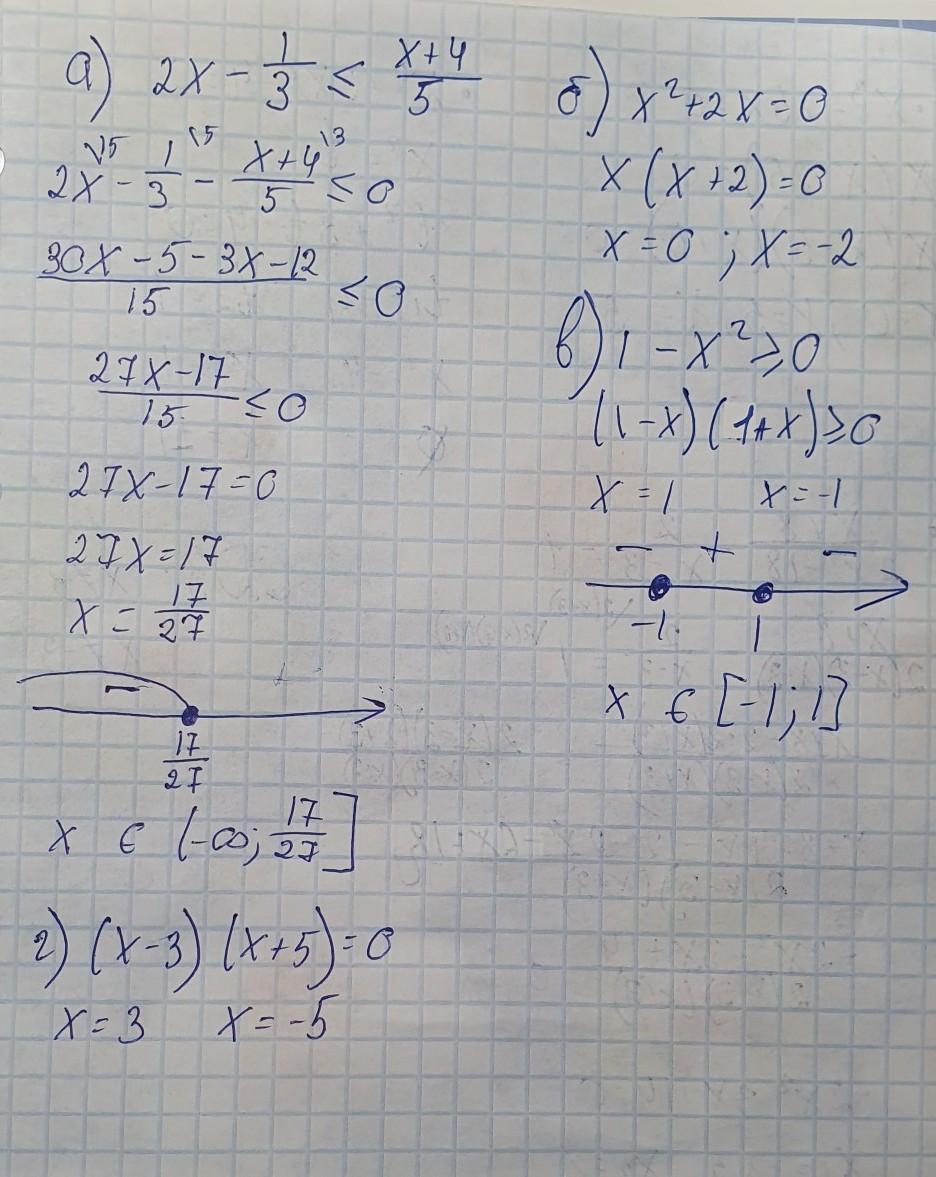 а) 2x - 1/3 ≤ (x+4)/5
2x\15 - 1/3\5 - (x+4)/5\3 ≤ 0
(30x - 5 - 3x - 12)/15 ≤ 0
(27x - 17)/15 ≤ 0
27x - 17 = 0
27x = 17
x = 17/27
- +
17/27
x ∈ (-∞; 17/27]
г) (x-3) (x+5) = 0
x = 3 x = -5
б) x² + 2x = 0
x (x+2) = 0
x = 0 ; x = -2
в) 1 - x² ≥ 0
(1-x) (1+x) ≥ 0
x = 1 x = -1
- + -
-1 1
x ∈ [-1; 1]